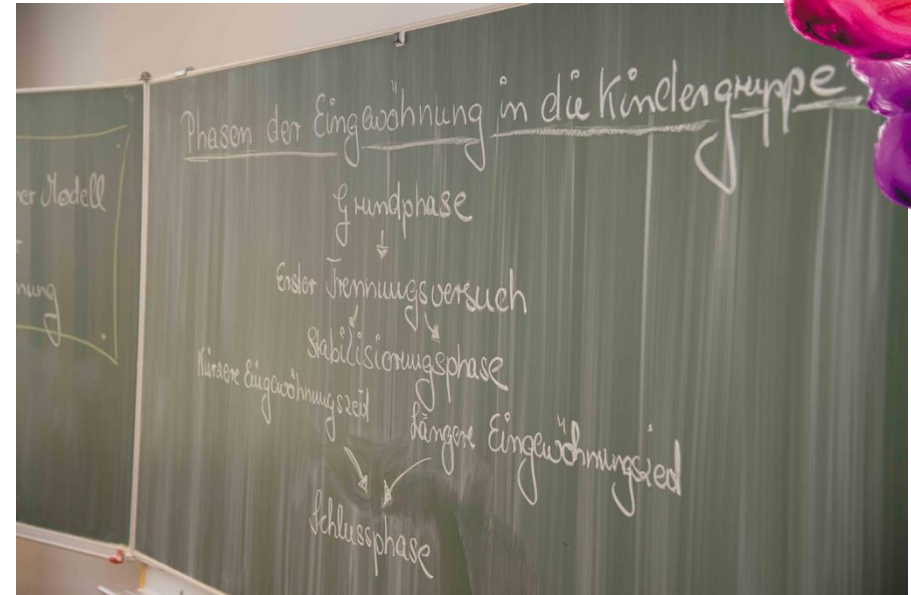 er Modell
nung
Phasen der Eingewöhnung in die Kindergruppe
Grundphase
Erster Trennungsversuch
Stabilisierungsphase
Kürzere Eingewöhnungszeit
Längere Eingewöhnungszeit
Schlussphase